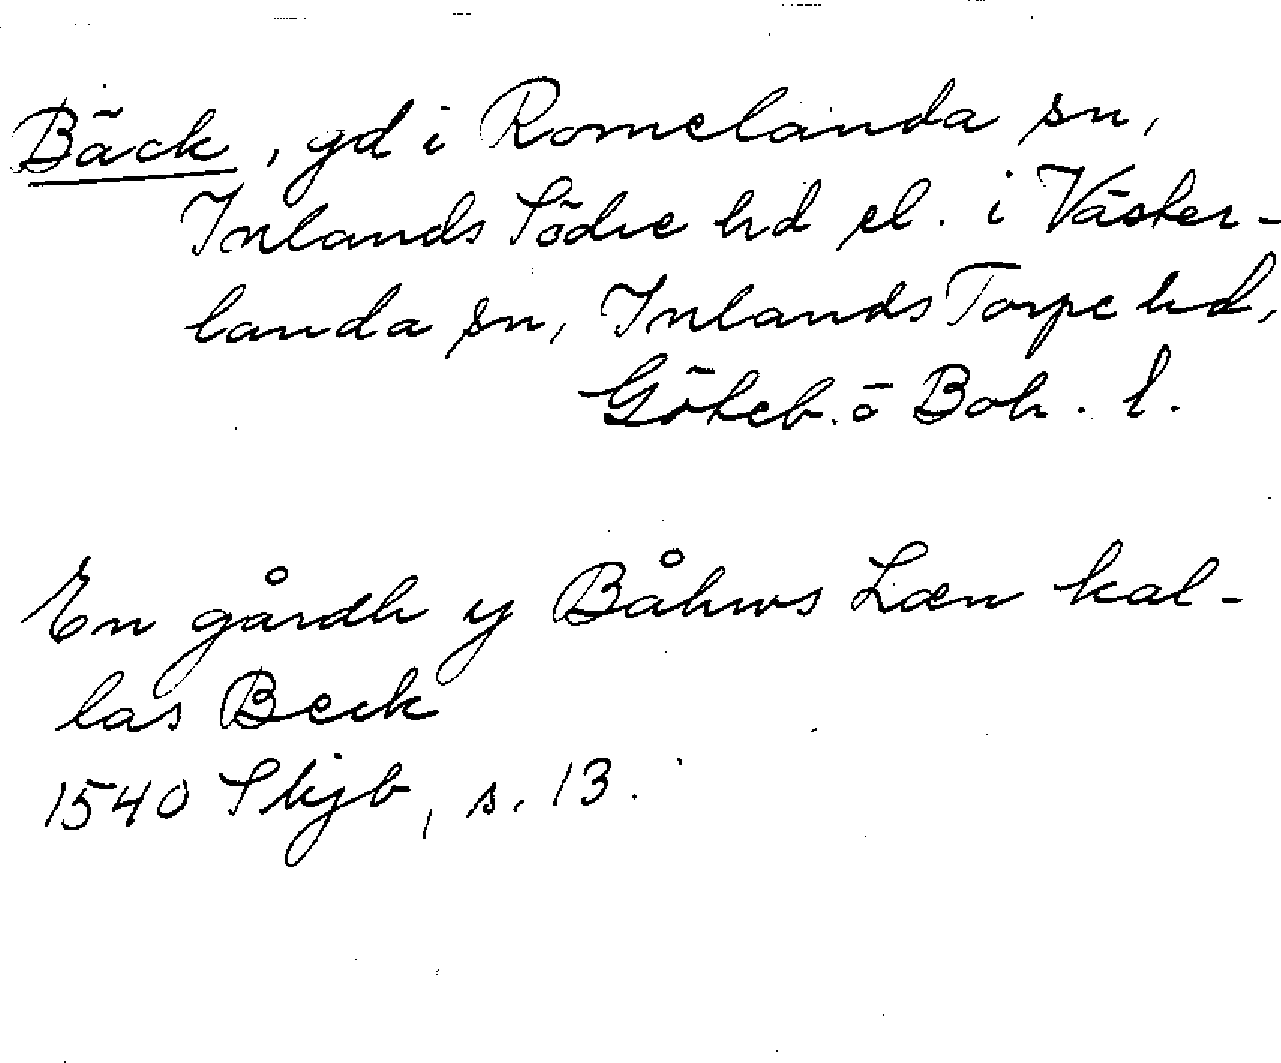 Bäck, gd i Romelanda sn,
Inlands Södre hd el. i Väster-
landa sn, Inlands Torpe hd,
Göteb. o Boh. l.
En gårdh y Båhws Læn kal-
las Beck
1540 Skjb, s. 13.